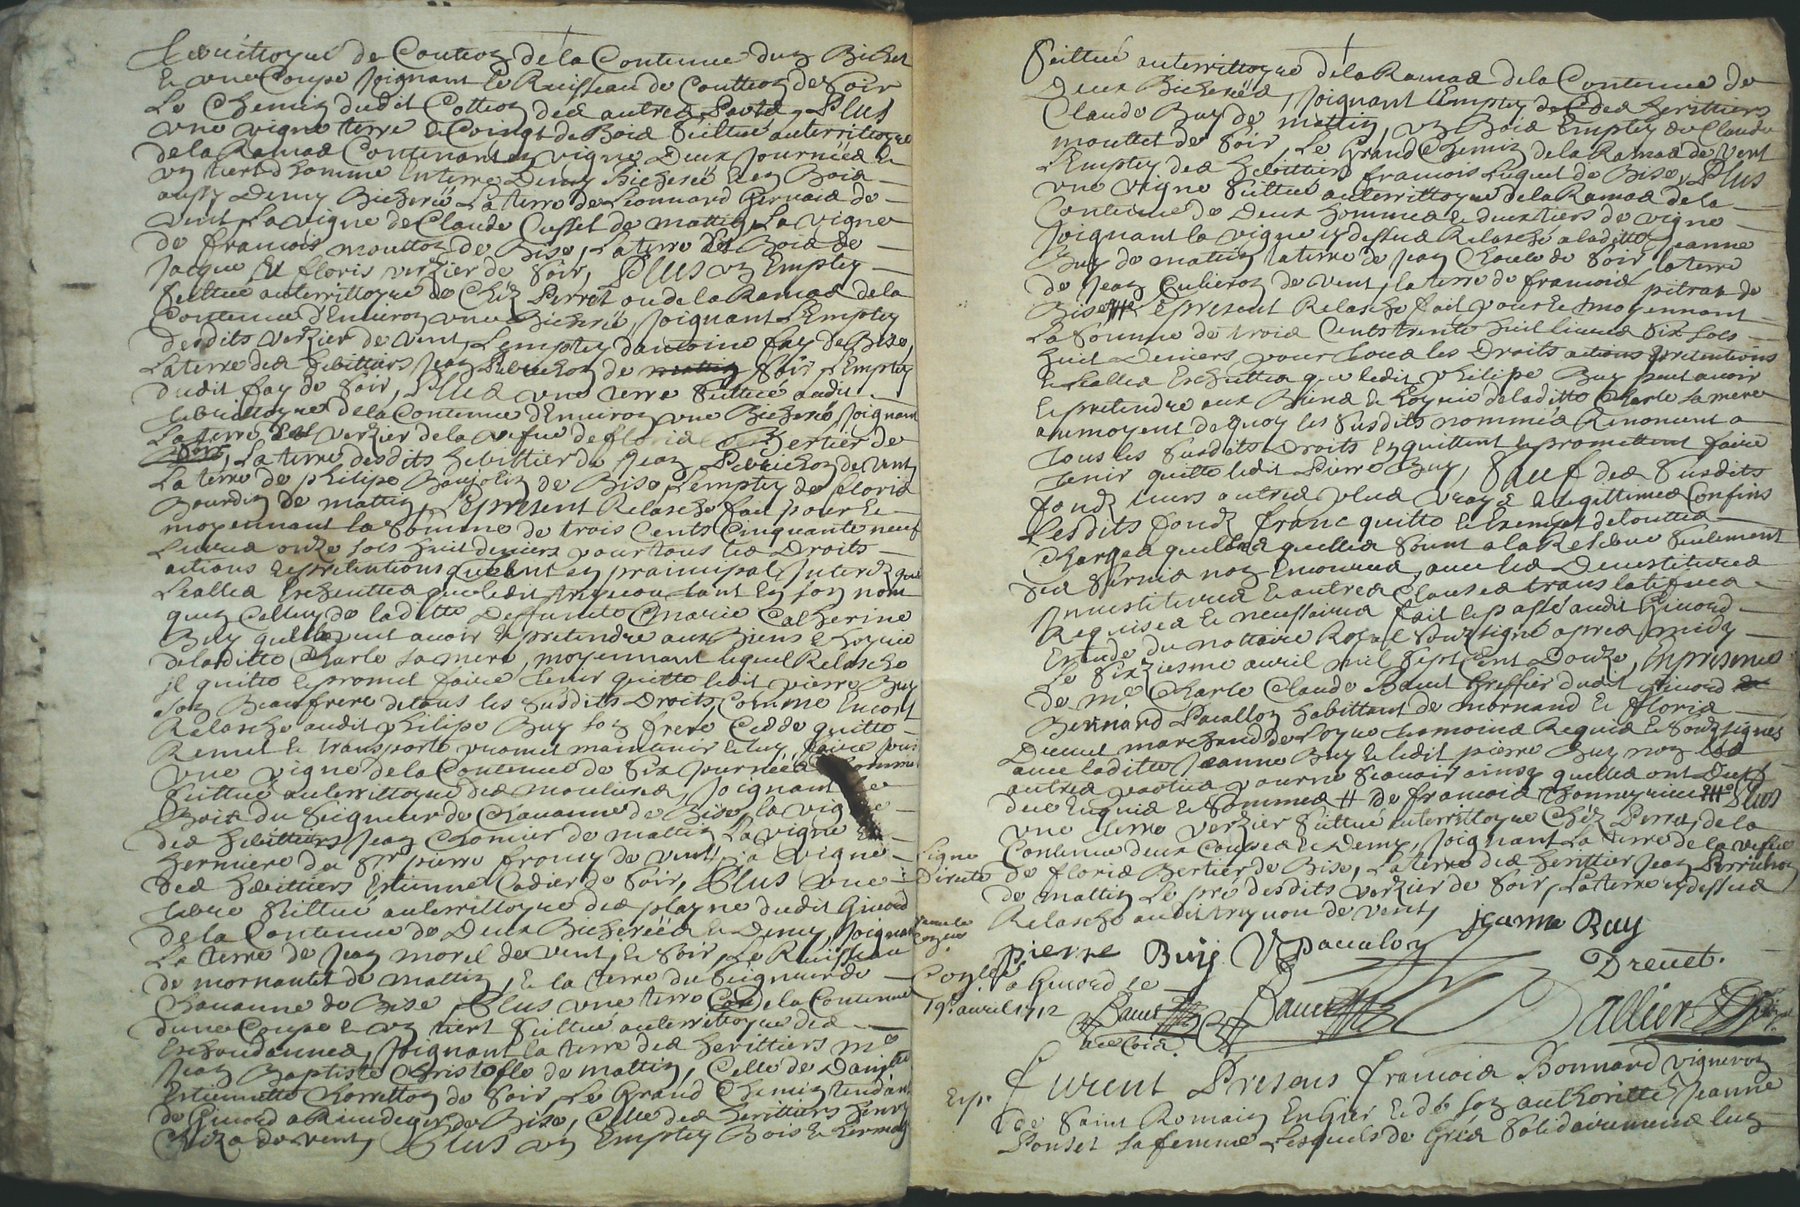 territoyre de Coutton de la Contenue dun Bichet
et une Coupe joignant le Ruisseau de Coutton de soir
Le Chemin dudit Cotton des autres Parts, PLUS
une vigne terre et Coingt de Bois scittué au territtoyre
de la Ramas Contenant en vigne Deux Journées et
un tiers d'homme En terre Demy Bicherée et en Bois
aussy Demy Bicherée La terre de Leonnard Bernard de
vent La vigne de Claude Cusset de mattin La vigne
de francois moutton de Bise, La terre et Bois de
Jacque et floris verzier de Soir, PLUS un Emptey
Scittué au territtoyre de Chéz Perret ou de la Ramas de la
Contenue d'Environ une Bicherée, joignant L'Emptey
desdits verzier de vent L'emptey dantoine fay de Bise,
La terre des herittiers Jean Perrichon de soir L'Emptey
dudit fay de Soir, PLus une terre scittué audit
territtoyre de la Contenue d'Environ une Bicherée joignant
La terre verzier de la vefue de floris Bertier de
Soir, La terre desdits herittier de Jean Perrichon de vent
La terre de philipe Baujolin de Bise L'emptey de floris
Bourdin de mattin, Le present Relasche fait pour et
moyennant la Somme de trois Cents Cinquante neuf
Livres onze sols huit deniers pour tous les Droits
actions et pretentions quelcint en prainsipal, Interez que
Leallés Escheuttes que ledit trignou tant En son nom
quen Celluy de laditte Deffunte marie Catherine
Buy quelle peut auoir et pretendre aux Biens et hoyrie
de laditte Charle sa mere, moyennant lequel Relasche
il quitte et promet faire tenir quitte ledit pierre Buy
son Beaufrere de tous les susdits Droits, Comme Encor
Relasche audit philipe Buy son frere Cedde quitte
Remet et transporte promet maintenir et luy faire jouir
une vigne de la Contenue de Six Journées d'homme
Scittué au territtoyre des moulures, joignant le
Bois du Seigneur de Chavanne de Bise la vigne
des herittiers Jean Chomier de mattin La vigne
herniere du Sr pierre froncy de vent, La vigne
des herittiers Estienne Cadier de Soir, PLus une
terre scittué au territtoyre des playne dudit Givord
de la Contenue de Deux Bicherées et Demy, joignant
La terre de Jean morel de vent, et Soir, Le Ruisseau
de mornantet de mattin, et la terre du Seigneur de
Chavanne de Bise, PLus une terre de la Contenue
dune Coupe et un tiers scittué au territtoyre des
Eschaudannes, joignant la terre des herittiers me
Jean Baptiste Christofle de mattin, Celle de Damlle
Estiennette Chorretton de Soir, Le Grand Chemin tendant
de Givord a Rivedegier de Bise, Celle des herittiers henry
Chiza de vent, PLus un Emptey Bois et hermay
Scittué au territtoyre de la Ramas de la Contenue de
Deux Bicherées, joignant L'Emptey des herittiers
Claude Buy de mattin, un Bois Emptey de Claude
mouttet de Soir, Le Grand Chemin de la Ramas de vent
L'Emptey des herittiers francois Luquet de Bise, PLus
une vigne scittué au territtoyre de la Ramas de la
Contenue de Deux hommes et deux tiers de vigne
joignant la vigne cy dessus Relasché a laditte Jeanne
Buy de mattin la terre de Jean de Soir, la terre
de Jean de vent, la terre de francois pitrat de
Bise, Le present Relasche fait pour et moyennant
La Somme de trois Cents trente huit Livres Six sols
huit Deniers pour tous les Droits actions pretentions
et Leallés Escheuttes que ledit philipe Buy peut auoir
et pretendre aux Biens et hoyrie de laditte Charle sa mere
aumoyent de quoy les susdits nommés Renoncent a
tous les susdits Droits En quittent et promettent faire
tenir quitte ledit Pierre Buy, Sauf des susdits
fondz Leurs autres plus vrays et legittimes Confins
Lesdits fondz franc quitte et Exempt de touttes
Charges quelles quelles soint a la Reserve seulement
des servis non Encourus, avec les Devestitures
Investitures et autres Clauses translatifues
Requises et neussaires fait et passé audit Givord
Estude du nottaire Royal soussigné apres midy
Le Sixiesme avril mil Sept Cent Douze, En presence
de me Charle Claude Bauet Greffier dudit Givord
Bernnard Pacallon habittant de mornand et floris
Dreuet marchand de Loyre tesmoins Requis et soussignés
avec laditte Jeanne Buy et ledit pierre Buy non les
autres parties pour ne scavoir ainsy quelles ont Dit
deue Enquis et sommés # de francois PLus
une terre verzier scittué au territtoyre Chéz Perret, de la
Contenue deux Coupes et Demy, joignant La terre de la vefue
de floris Bertier de Bise, La terre des heritier Jean Perrichon
de mattin Le pré desdits verzier de Soir, La terre cy dessus
Relasché audit trignou de vent,
Ligne
Direite
jeanne Buy
pierre Buij pacalon
Dreuet.
Conlle
a Givord Le
19e avril 1712
Bauet
Bauet
Dallier
Exp.
furent Presens francois Bonnard vigneron
de Saint Romain En Gier et de son authorité Jeanne
Ponset sa femme Lesquels de Gres Solidairement lun